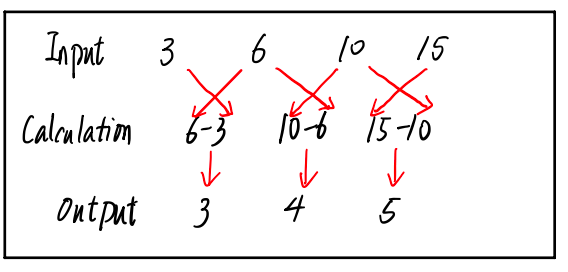 Input 3 6 10 15
Calculation 6-3 10-6 15-10
Output 3 4 5